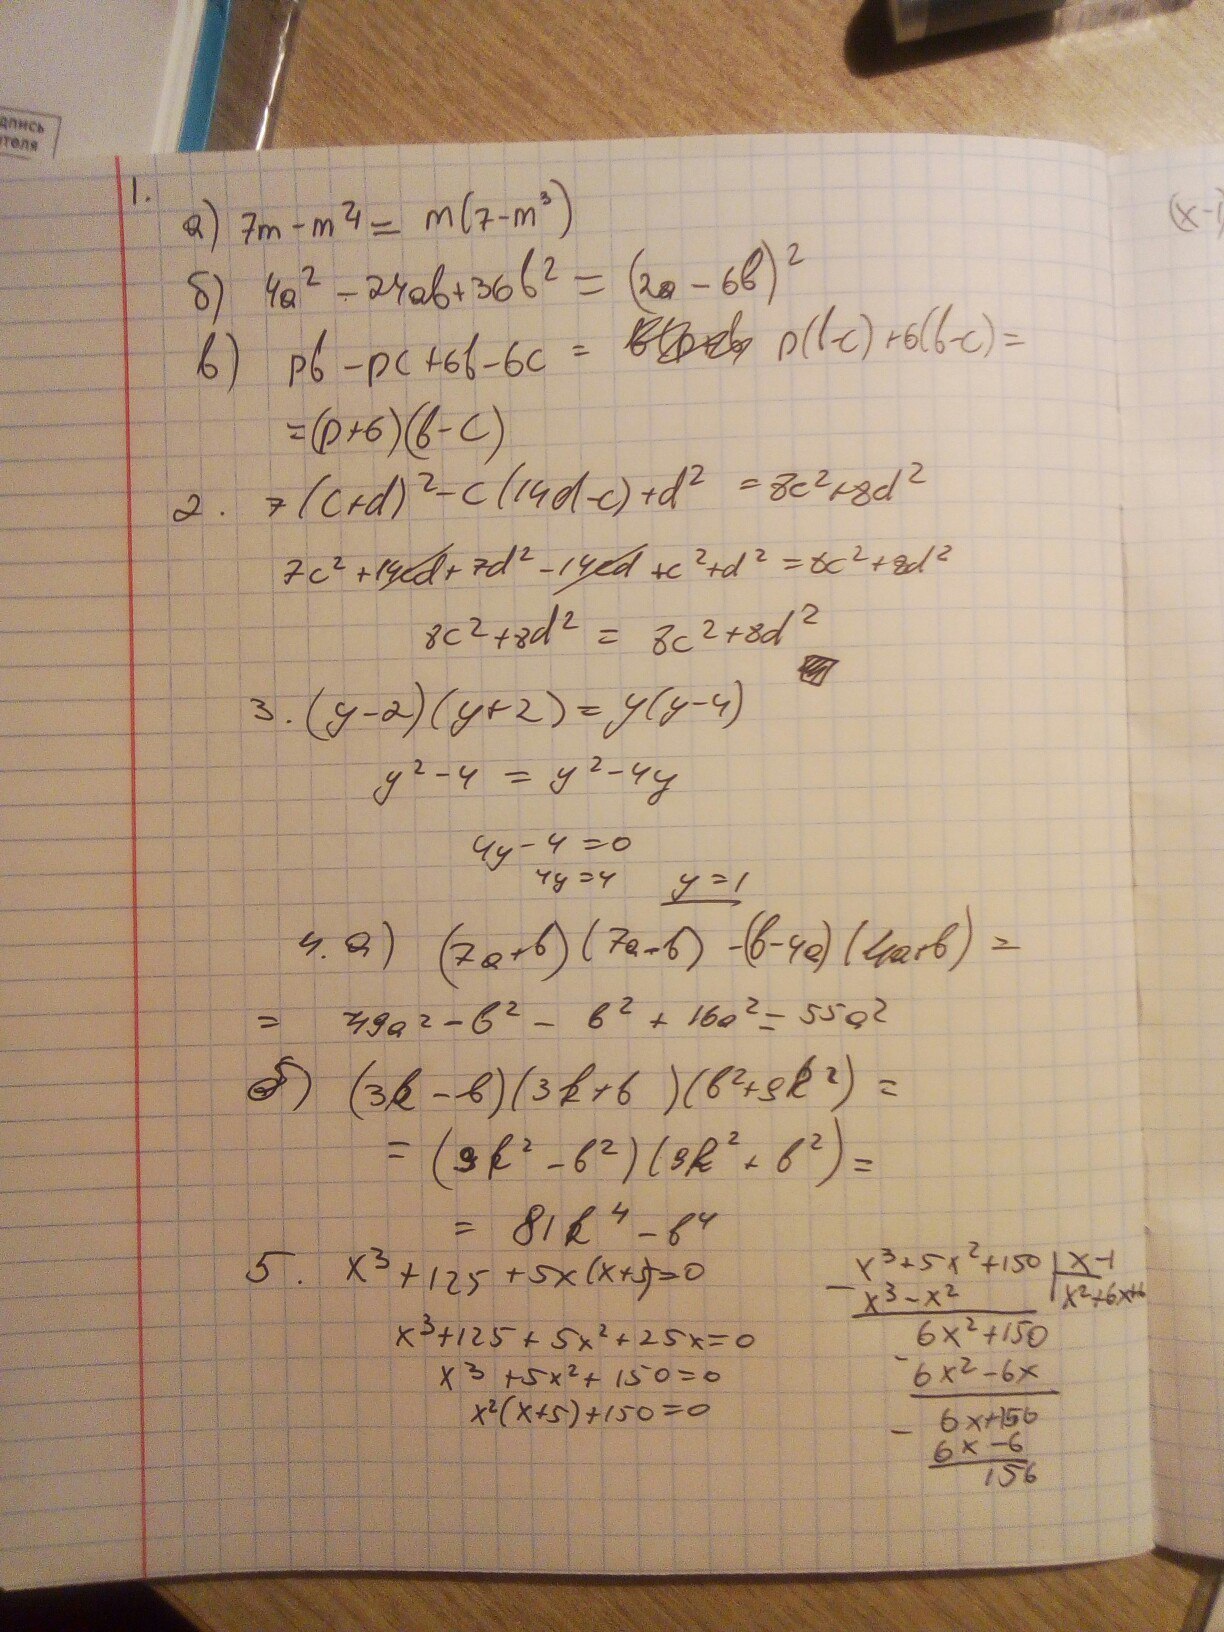 дпись
ителя
1.
а) 7m - m⁴ = m(7 - m³)
б) 4a² - 24ab + 36b² = (2a - 6b)²
в) pb - pc + 6b - 6c = p(b-c) + 6(b-c) =
= (p+6)(b-c)
2. 7(c+d)² - c(14d-c) + d² = 8c² + 8d²
7c² + 14cd + 7d² - 14cd + c² + d² = 8c² + 8d²
8c² + 8d² = 8c² + 8d²
3. (y-2)(y+2) = y(y-4)
y² - 4 = y² - 4y
4y - 4 = 0
4y = 4 y = 1
4. а) (7a+b)(7a-b) - (b-4a)(4a+b) =
= 49a² - b² - b² + 16a² = 55a²
б) (3k - b)(3k + b)(b² + 9k²) =
= (9k² - b²)(9k² + b²) =
= 81k⁴ - b⁴
5. x³ + 125 + 5x(x+5) = 0
x³ + 125 + 5x² + 25x = 0
x³ + 5x² + 150 = 0
x²(x+5) + 150 = 0
x³ + 5x² + 150 | x - 1
- x³ - x² | x² + 6x + 6
6x² + 150
- 6x² - 6x
6x + 150
- 6x - 6
156
(x-1)